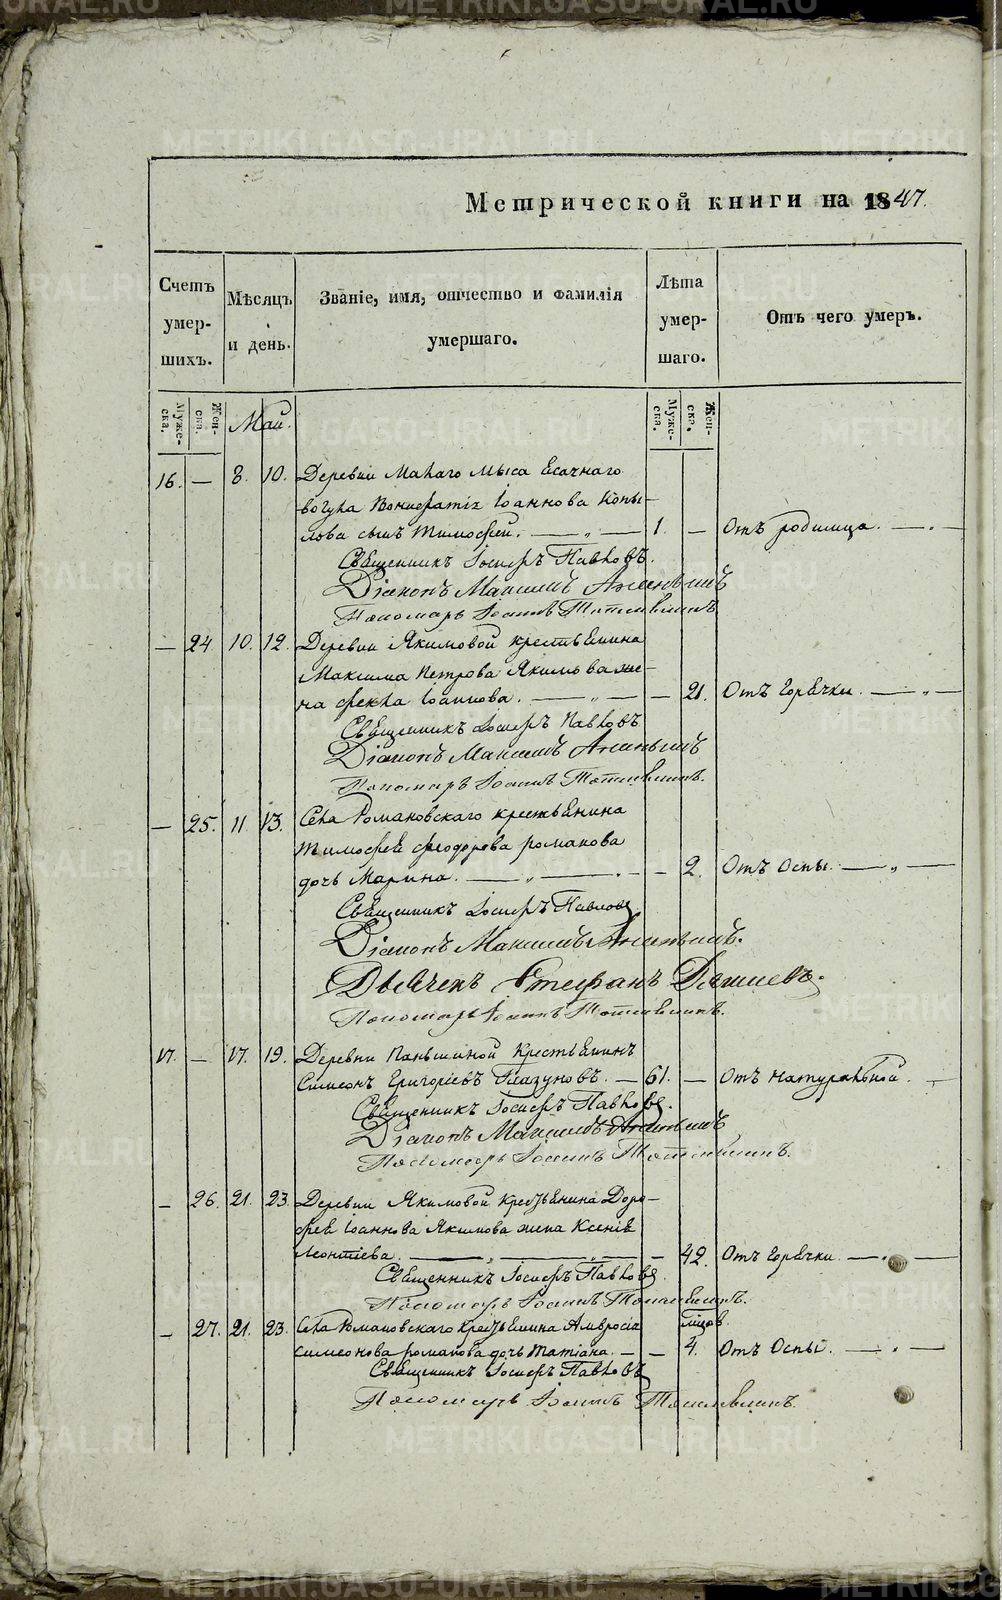 METRIKI.GASO-URAL.RU
Метрической книги на 1847.
Счетъ умер-шихъ.
Мѣсяцъ и день.
Званіе, имя, отчество и фамилія умершаго.
Лѣта умер-шаго.
Отъ чего умеръ.
Муже-ска.
Жен-ска.
Май.
Муже-ска.
Жен-ска.
16. — 8. 10. Деревни Малаго Мыса Ясачнаго
вогула Вонифатія Іоаннова Копы-
лова сынъ Тимофей. — „ — 1. — Отъ родимца. — „ —
Священникъ Іосифъ Павловъ.
Діаконъ Максимъ
Пономарь Іоаннъ
— 24 10. 12. Деревни Якимовой крестьянина
Максима Петрова Якимова же-
на Фекла Іоаннова. — „ — — 21. Отъ Горячки. — „ —
Священникъ Іосифъ Павловъ
Діаконъ Максимъ
Пономарь Іоаннъ
— 25. 11 13. Села Романовскаго крестьянина
Тимофея Феодорова Романова
дочь Марина. — „ — . — — 2. Отъ Оспы. — „ —
Священникъ Іосифъ Павловъ
Діаконъ Максимъ
Дьячекъ Стефанъ
Пономарь Іоаннъ
17. — 17. 19. Деревни Паньшиной Крестьянинъ
Симеонъ Григоріевъ Глазуновъ. — 61. — Отъ Натуральной. —
Священникъ Іосифъ Павловъ.
Діаконъ Максимъ
Пономарь Іоаннъ
— 26. 21. 23. Деревни Якимовой Крестьянина Доро-
фея Іоаннова Якимова жена Ксенія
Леонтіева. — „ — „ — — 42. Отъ Горячки — „ —
Священникъ Іосифъ Павловъ.
Пономарь Іоаннъ
— 27. 21. 23. Села Романовскаго Крестьянина Амвросія мѣсяцов.
Симеонова Романова дочь Татіана. — — 4. Отъ Оспы. — „ —
Священникъ Іосифъ Павловъ
Пономарь Іоаннъ